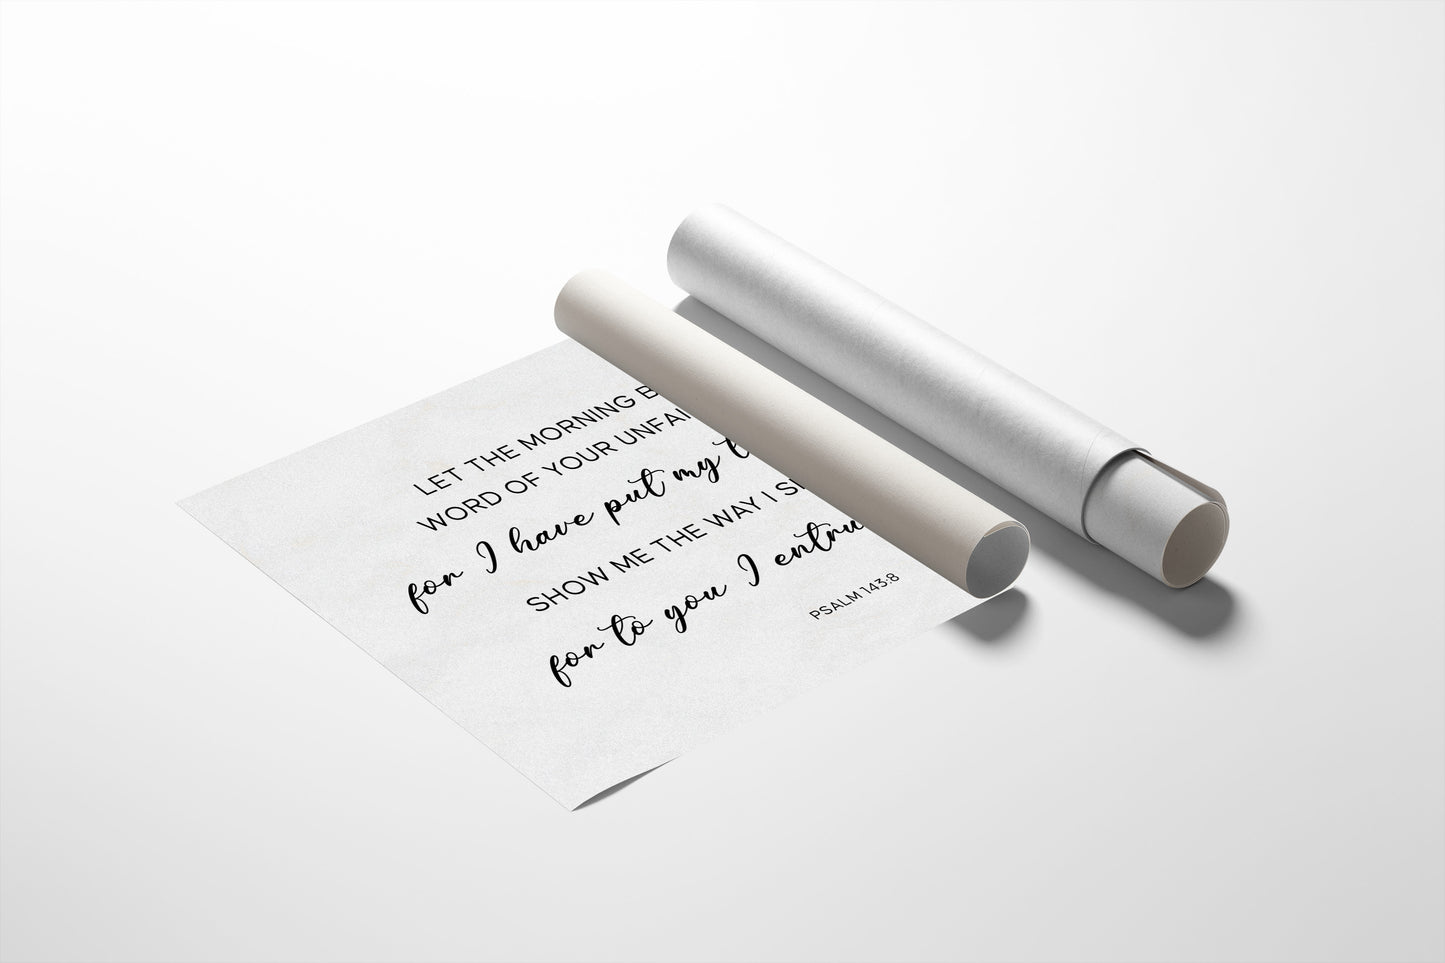 LET THE MORNING B
WORD OF YOUR UNFAI
for I have put my t
SHOW ME THE WAY I S
for to you I entru
PSALM 143:8